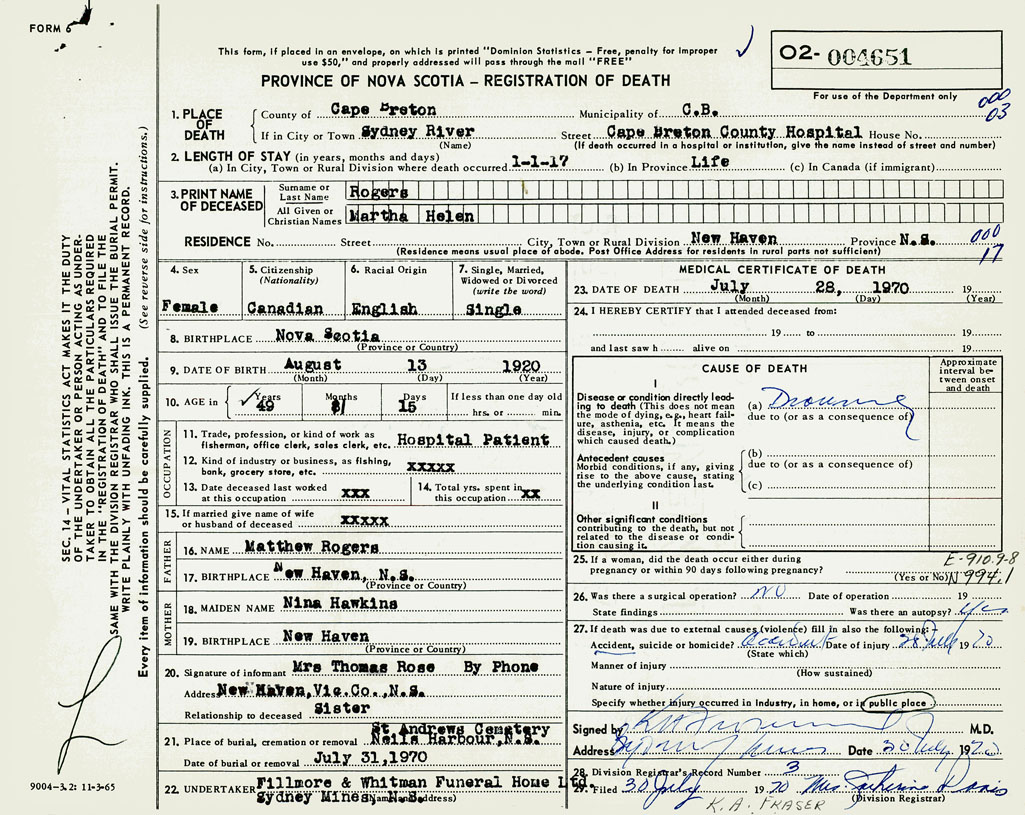 FORM 6
This form, if placed in an envelope, on which is printed "Dominion Statistics – Free, penalty for improper
use $50," and properly addressed will pass through the mail "FREE"
PROVINCE OF NOVA SCOTIA – REGISTRATION OF DEATH
02- 004651
For use of the Department only
000
03
1. PLACE OF DEATH
County of Cape Breton Municipality of C.B.
If in City or Town Sydney River Street Cape Breton County Hospital House No.
(Name) (If death occurred in a hospital or institution, give the name instead of street and number)
2. LENGTH OF STAY (in years, months and days)
(a) In City, Town or Rural Division where death occurred 1-1-17 (b) In Province Life (c) In Canada (if immigrant)
3. PRINT NAME OF DECEASED
Surname or Last Name Rogers
All Given or Christian Names Martha Helen
RESIDENCE No. Street City, Town or Rural Division New Haven Province N.S.
(Residence means usual place of abode. Post Office Address for residents in rural parts not sufficient)
000
17
4. Sex
Female
5. Citizenship
(Nationality)
Canadian
6. Racial Origin
English
7. Single, Married,
Widowed or Divorced
(write the word)
Single
8. BIRTHPLACE Nova Scotia
(Province or Country)
9. DATE OF BIRTH August 13 1920
(Month) (Day) (Year)
10. AGE in Years Months Days If less than one day old
49 15 hrs. or min.
OCCUPATION
11. Trade, profession, or kind of work as
fisherman, office clerk, sales clerk, etc. Hospital Patient
12. Kind of industry or business, as fishing,
bank, grocery store, etc. xxxxx
13. Date deceased last worked
at this occupation xxx
14. Total yrs. spent in
this occupation xx
15. If married give name of wife
or husband of deceased xxxxx
FATHER
16. NAME Matthew Rogers
17. BIRTHPLACE New Haven, N.S.
(Province or Country)
MOTHER
18. MAIDEN NAME Nina Hawkins
19. BIRTHPLACE New Haven
(Province or Country)
20. Signature of informant Mrs Thomas Rose By Phone
Address New Haven, Vic.Co., N.S.
Relationship to deceased Sister
21. Place of burial, cremation or removal St Andrews Cemetary
Neils Harbour, N.S.
Date of burial or removal July 31,1970
22. UNDERTAKER Fillmore & Whitman Funeral Home Ltd.
Sydney Mines, N.S.
(Name and address)
MEDICAL CERTIFICATE OF DEATH
23. DATE OF DEATH July 28, 1970 19
(Month) (Day) (Year)
24. I HEREBY CERTIFY that I attended deceased from:
19 to 19
and last saw h alive on 19
CAUSE OF DEATH
Approximate interval between onset and death
I
Disease or condition directly leading
to death (This does not mean
the mode of dying, e.g., heart failure,
asthenia, etc. It means the
disease, injury, or complication
which caused death.)
(a)
due to (or as a consequence of)
Antecedent causes
Morbid conditions, if any, giving
rise to the above cause, stating
the underlying condition last.
(b)
due to (or as a consequence of)
(c)
II
Other significant conditions
contributing to the death, but not
related to the disease or condition
causing it.
25. If a woman, did the death occur either during
pregnancy or within 90 days following pregnancy?
(Yes or No)
E-910.9-8
N994.1
26. Was there a surgical operation? NO Date of operation 19
State findings Was there an autopsy? Yes
27. If death was due to external causes (violence) fill in also the following:–
Accident, suicide or homicide? Accident Date of injury 28 July 1970
(State which)
Manner of injury
(How sustained)
Nature of injury
Specify whether injury occurred in industry, in home, or in public place
Signed by M.D.
Address Sydney Mines Date 30 July 1970
28. Division Registrar's Record Number 3
29. Filed 30 July 1970 Mrs. Catherine Davis
(Division Registrar)
K.A. FRASER
SEC. 14 – VITAL STATISTICS ACT MAKES IT THE DUTY
OF THE UNDERTAKER OR PERSON ACTING AS UNDERTAKER
TO OBTAIN ALL THE PARTICULARS REQUIRED
IN THE "REGISTRATION OF DEATH" AND TO FILE THE
SAME WITH THE DIVISION REGISTRAR WHO SHALL ISSUE THE BURIAL PERMIT.
WRITE PLAINLY WITH UNFADING INK. THIS IS A PERMANENT RECORD.
Every item of information should be carefully supplied. (See reverse side for instructions.)
9004-3.2: 11-3-65